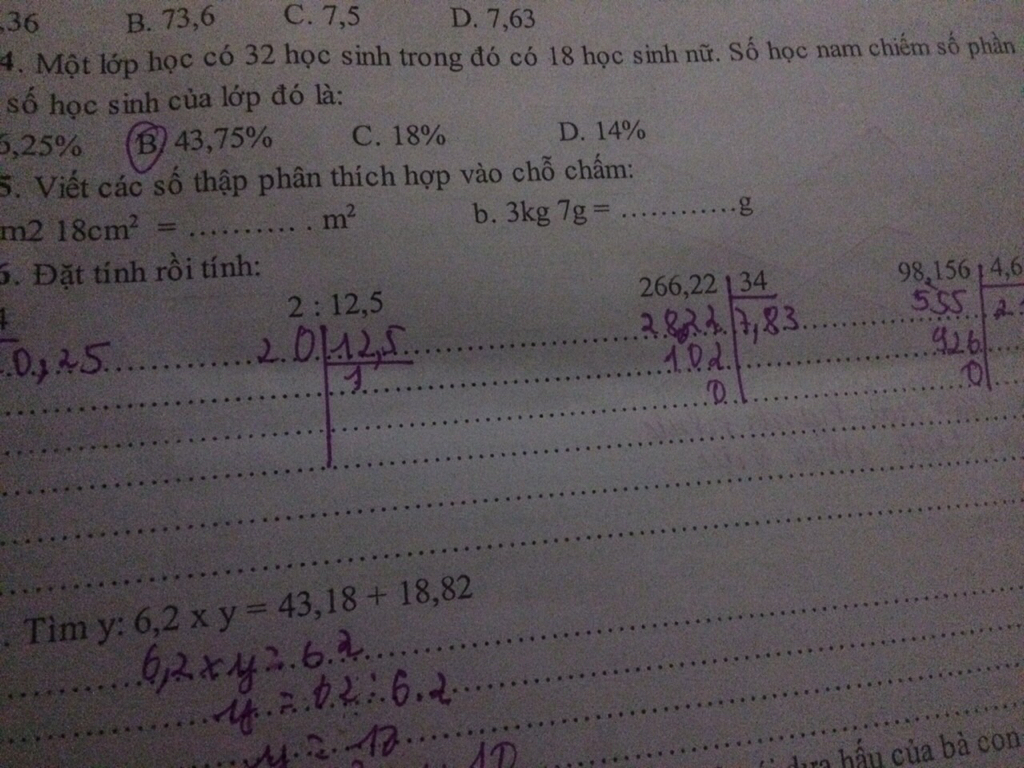 ,36 B. 73,6 C. 7,5 D. 7,63
4. Một lớp học có 32 học sinh trong đó có 18 học sinh nữ. Số học nam chiếm số phần
số học sinh của lớp đó là:
6,25% B 43,75% C. 18% D. 14%
5. Viết các số thập phân thích hợp vào chỗ chấm:
m2 18cm² = .......... . m² b. 3kg 7g = ............g
6. Đặt tính rồi tính:
2 : 12,5 266,22 34 98,156 4,6
0,25 20 12,5 2822 7,83 555 2
1 102 926
0 0
. Tìm y: 6,2 x y = 43,18 + 18,82
6,2 x y = 62
y = 62 : 6.2
y = 10
10
dưa hấu của bà con